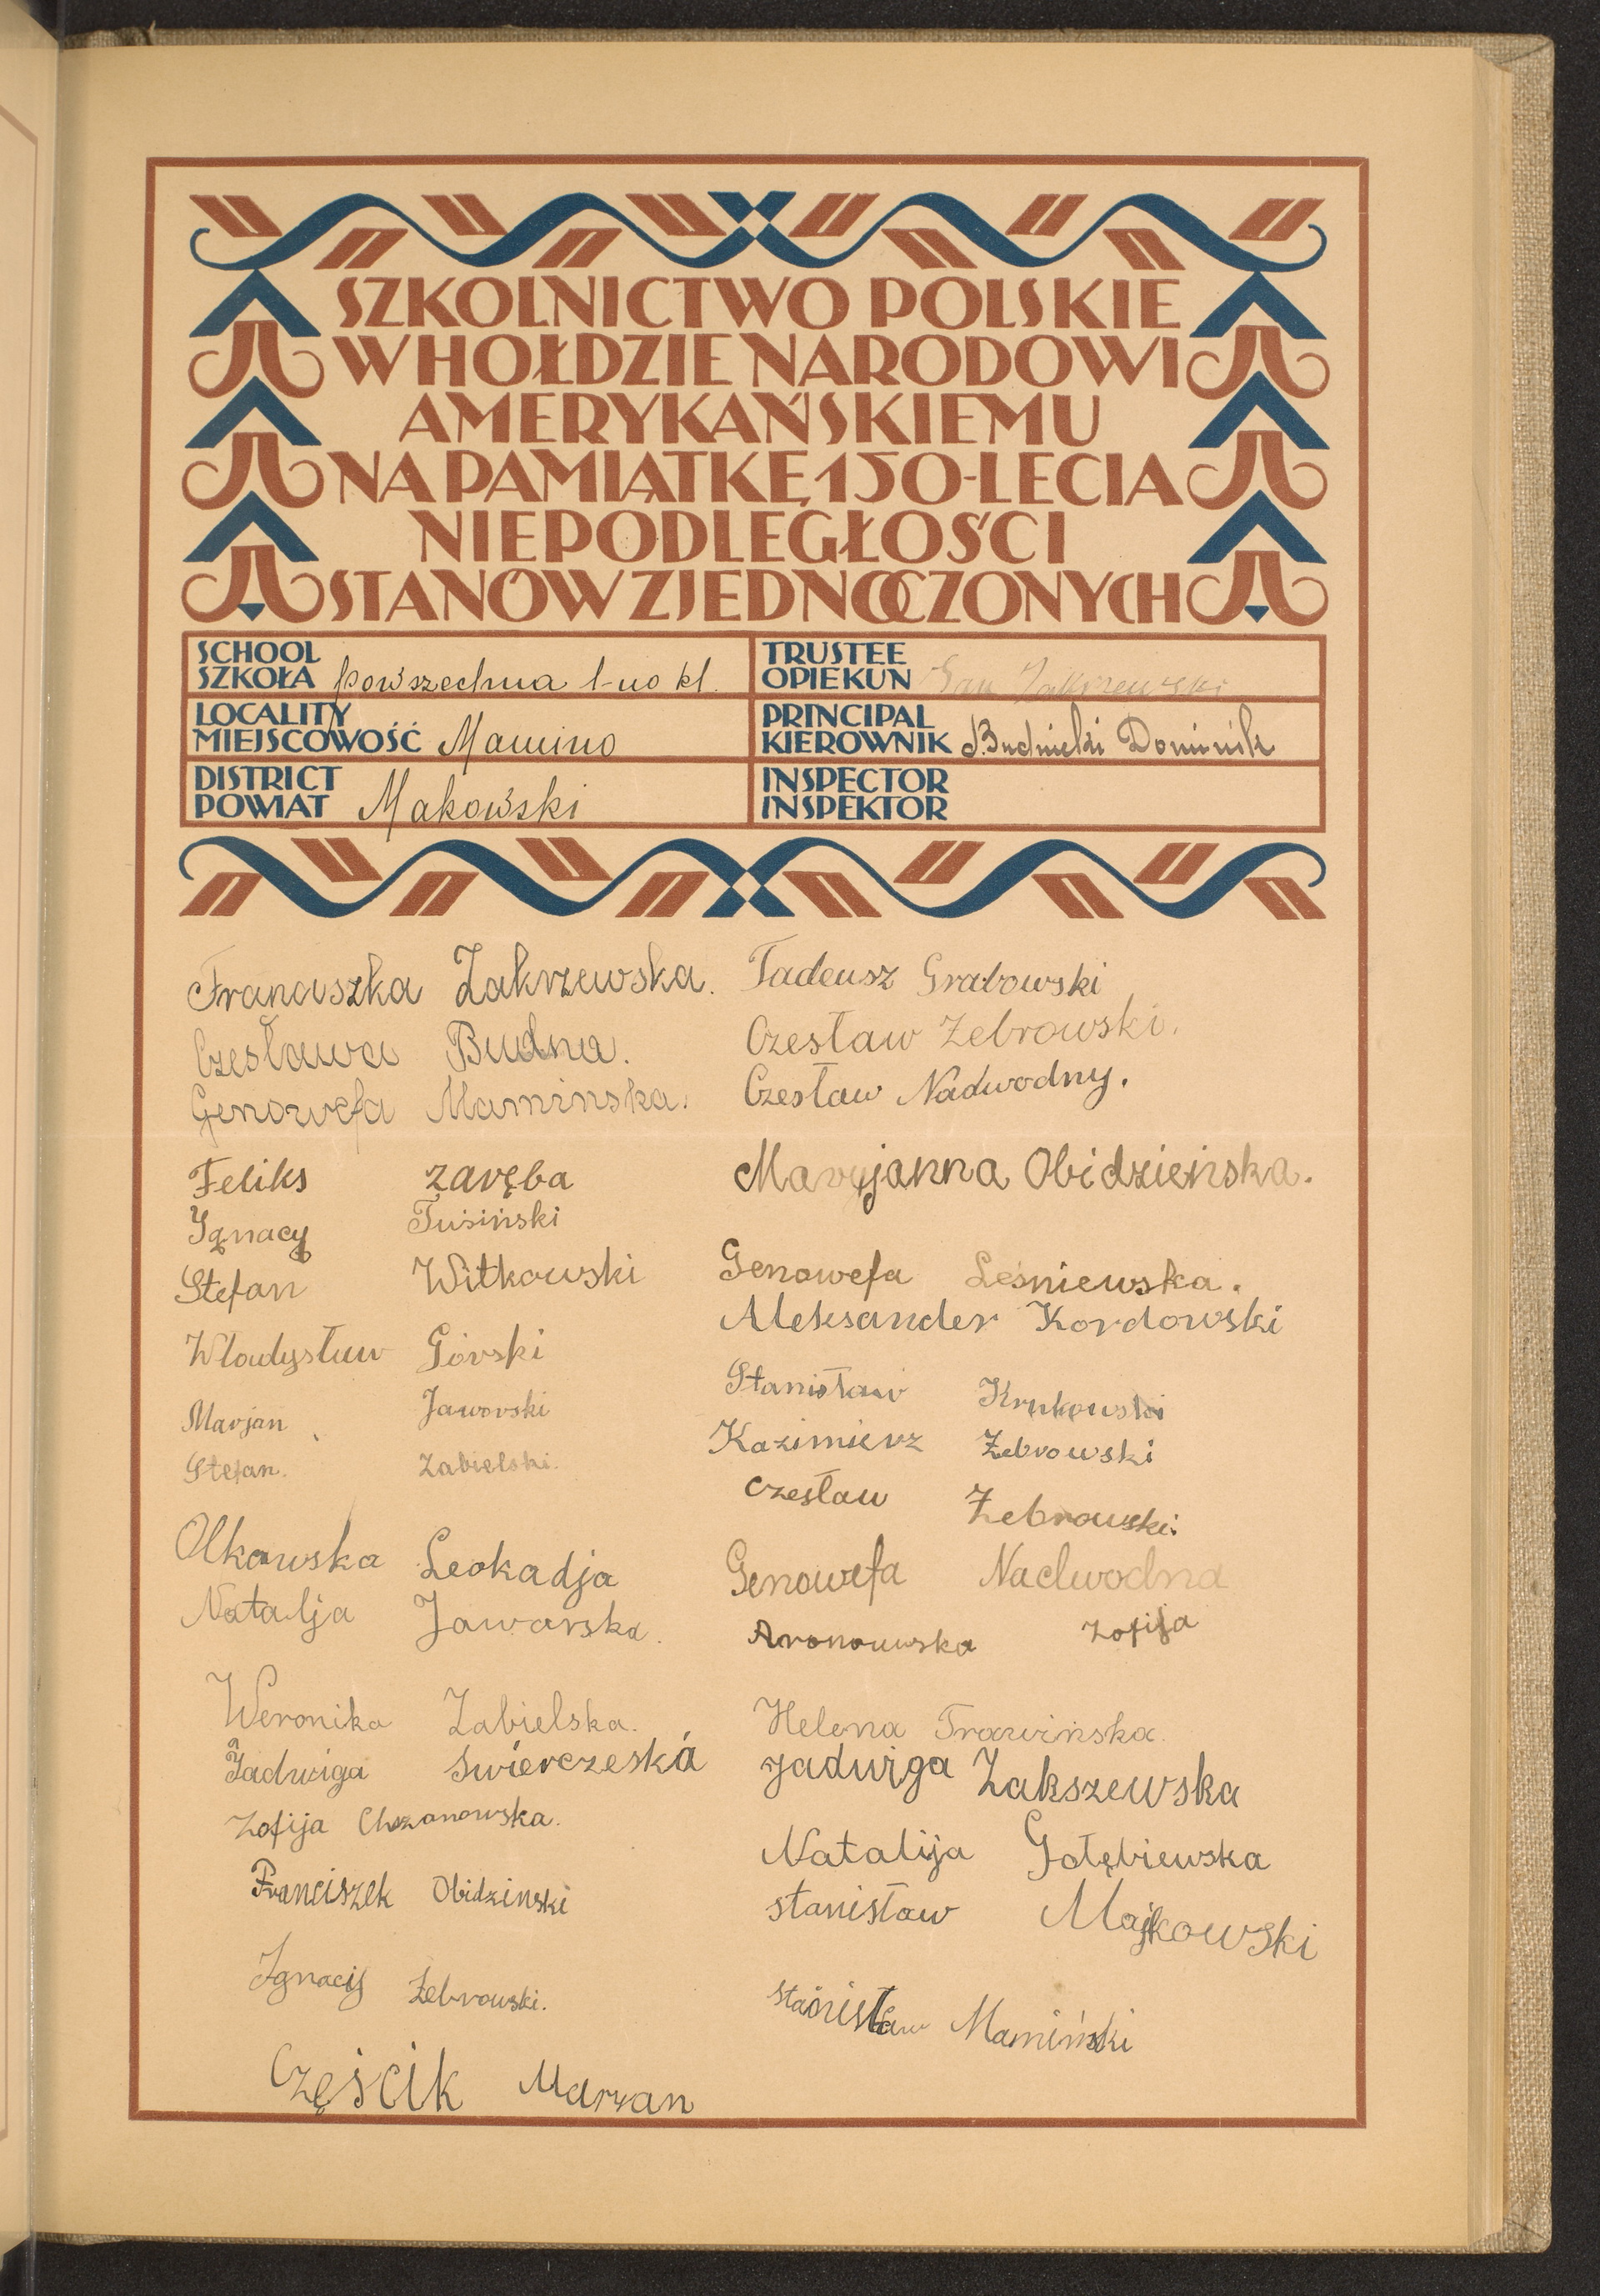 SZKOLNICTWO POLSKIE
W HOŁDZIE NARODOWI
AMERYKAŃSKIEMU
NA PAMIĄTKĘ 150-LECIA
NIEPODLEGŁOŚCI
STANÓW ZJEDNOCZONYCH
SCHOOL
SZKOŁA powszechna 1-no kl.
LOCALITY
MIEJSCOWOŚĆ Mamino
DISTRICT
POWIAT Makowski
TRUSTEE
OPIEKUN Jan Zakrzewski
PRINCIPAL
KIEROWNIK Budnicki Dominik
INSPECTOR
INSPEKTOR
Franciszka Zakrzewska.
Czesława Budna.
Genowefa Maminska.
Feliks Zaręba
Ignacy Tusiński
Stefan Witkowski
Władysław Górski
Marjan Jaworski
Stefan. Zabielski.
Olkowska Leokadja
Natalja Jaworska.
Weronika Zabielska.
Jadwiga Swierczeská
Zofija Chszanowska.
Franciszek Obidzinski
Ignacij Żebrowski.
Częścik Maryan
Tadeusz Grabowski
Czesław Żebrowski.
Czesław Nadwodny.
Maryjanna Obidzieńska.
Genowefa Leśniewska.
Aleksander Kordowski
Stanisław Krukowski
Kazimierz Żebrowski
Czesław Żebrowski.
Genowefa Nadwodna
Aronowska Zofija
Helena Trawińska.
Jadwiga Zakszewska
Natalija Gołębiewska
Stanisław Majkowski
Stanisław Mamiński